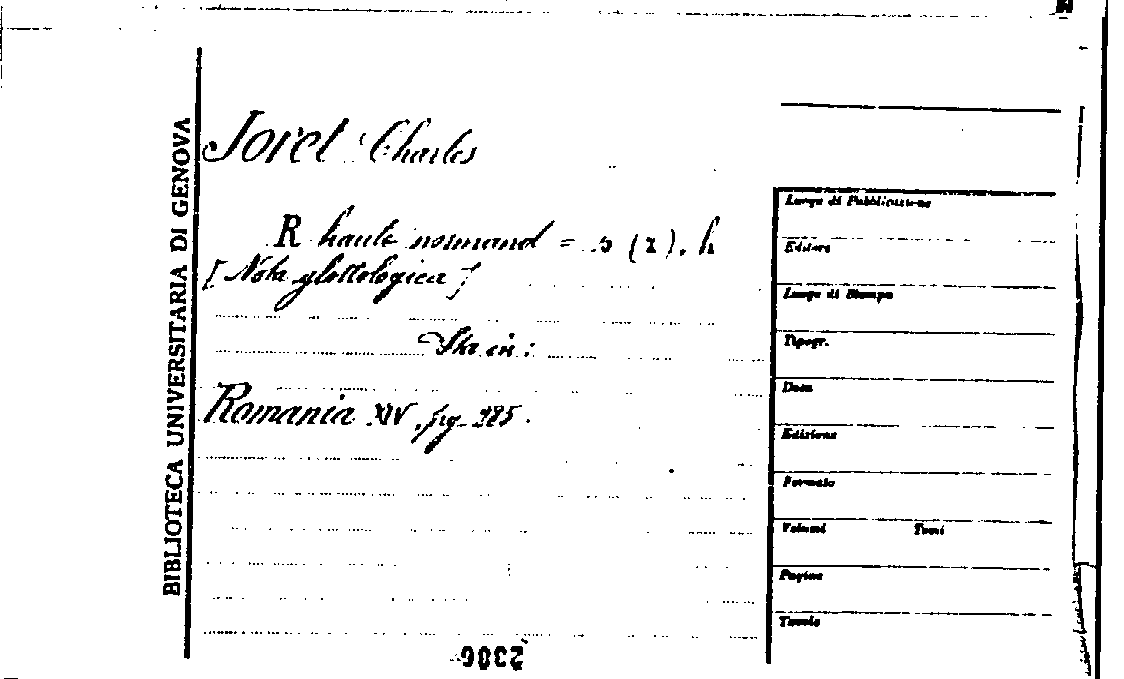 BIBLIOTECA UNIVERSITARIA DI GENOVA
Joret Charles
R haute normand = s (z), h
[Nota glottologica]
Sta in:
Romania XIV, pg. 285.
Luogo di Pubblicazione
Editore
Luogo di Stampa
Tipogr.
Data
Edizione
Formato
Volumi Tomi
Pagine
Tavole
2306